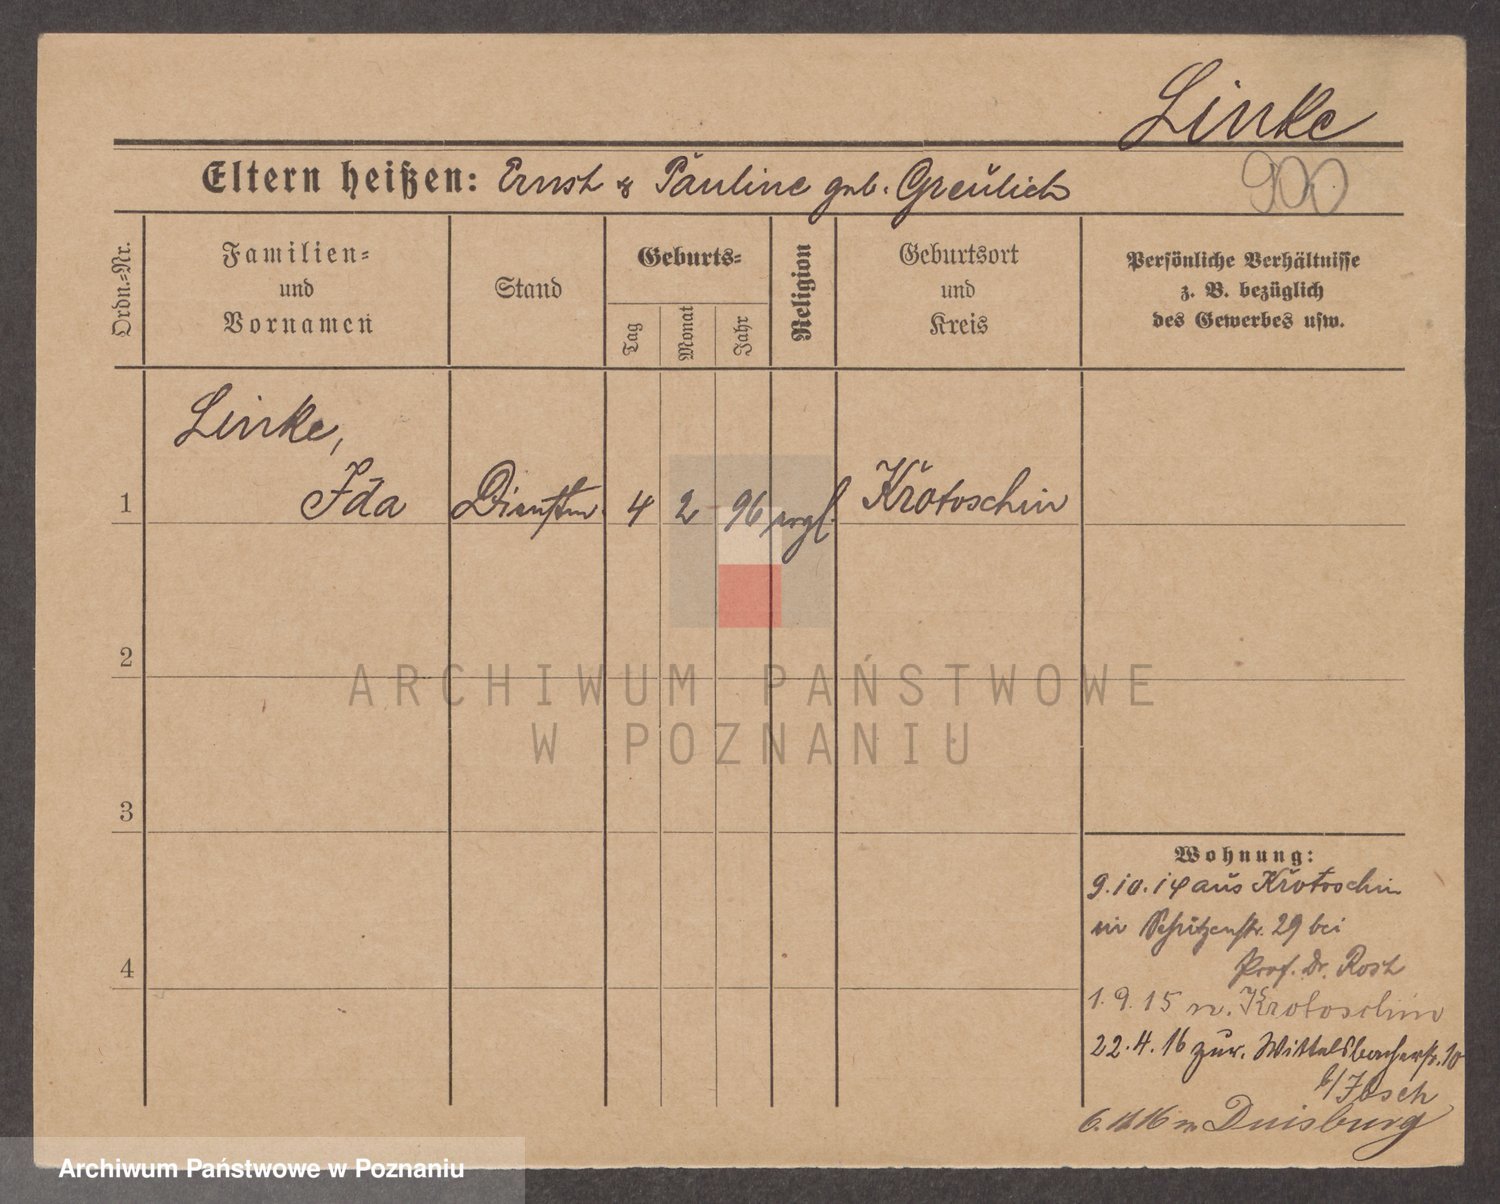 Linke
900
Eltern heißen: Ernst & Pauline geb. Greulich
Ordn.-Nr.
Familien-
und
Vornamen
Stand
Geburts-
Tag
Monat
Jahr
Religion
Geburtsort
und
Kreis
Persönliche Verhältnisse
z. B. bezüglich
des Gewerbes usw.
Linke,
1 Ida Dienstm. 4 2 96 evgl. Krotoschin
2
3
4
Wohnung:
9.10.14 aus Krotoschin
in Schützenstr. 29 bei
Prof. Dr. Rost
1.9.15 n. Krotoschin
22.4.16 zur. Wittelsbacherstr. 10
b/
6. n Duisburg
ARCHIWUM PAŃSTWOWE
W POZNANIU
Archiwum Państwowe w Poznaniu